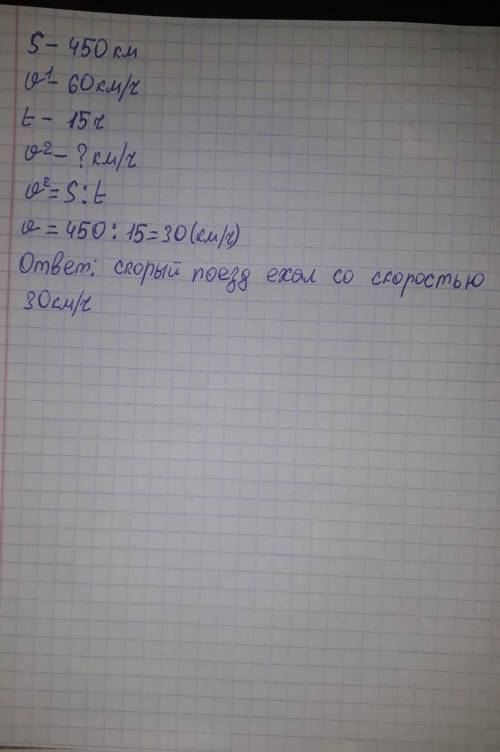 S – 450 км
υ¹ – 60 км/ч
t – 15 ч
υ² – ? км/ч
υ² = S : t
υ = 450 : 15 = 30 (км/ч)
Ответ: скорый поезд ехал со скоростью
30 км/ч